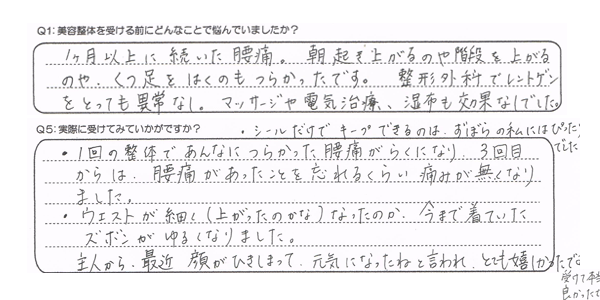 Q1: 美容整体を受ける前にどんなことで悩んでいましたか?
1ヶ月以上に続いた腰痛。朝起き上がるのや階段を上がる
のや、くつ足をはくのもつらかったです。 整形外科でレントゲン
をとっても異常なし。マッサージや電気治療、湿布も効果なしでした。
Q5: 実際に受けてみていかがですか?
・シールだけでキープできるのは、ずぼらの私にはぴったり
でした
・1回の整体であんなにつらかった腰痛がらくになり、3回目
からは、腰痛があったことを忘れるくらい痛みが無くなり
ました。
・ウエストが細く(上がったのかな)なったのか、今まで着ていた
ズボンがゆるくなりました。
主人から、最近 顔がひきしまって、元気になったねと言われ、とても嬉しかったで
受けて本
良かったで